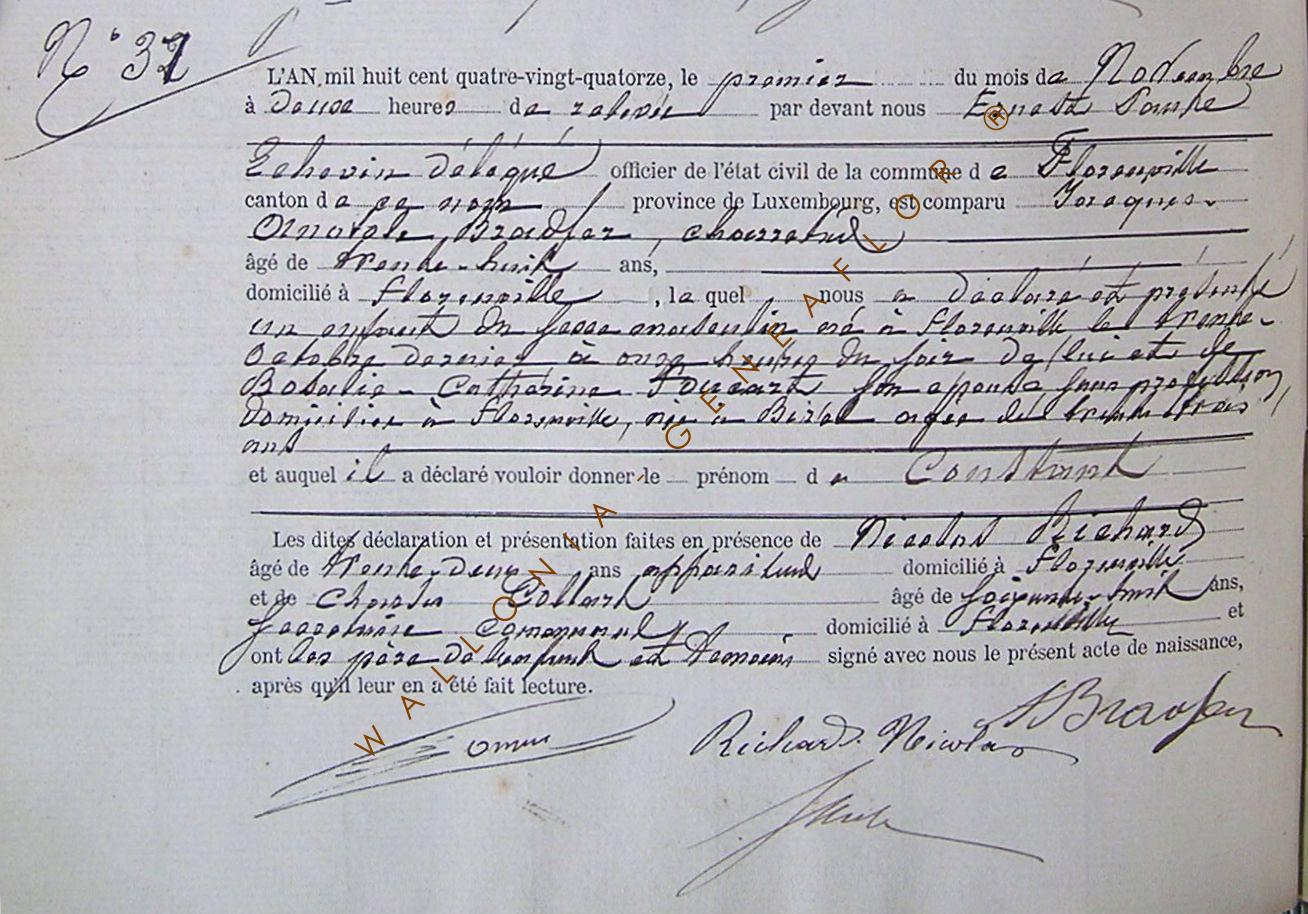 N° 32
L'AN mil huit cent quatre-vingt-quatorze, le premier du mois de Novembre
à heures de relevée par devant nous Ernest
Echevin délégué officier de l'état civil de la commune de Florenville
canton de ce nom province de Luxembourg, est comparu Jacques
Bradfer,
âgé de trente-huit ans,
domicilié à Florenville, le quel nous a déclaré et présenté
un enfant du sexe masculin né à Florenville le trente
Octobre dernier à onze heures du soir de lui et de
Rosalie-Catherine son épouse sans profession,
domiciliée à Florenville, née à agée de trente trois
ans
et auquel il a déclaré vouloir donner le prénom de Constant
Les dites déclaration et présentation faites en présence de Nicolas Richard
âgé de trente-deux ans appariteur domicilié à Florenville
et de Charles âgé de soixante-huit ans,
Secrétaire communal domicilié à Florenville et
ont les père de l'enfant et témoins signé avec nous le présent acte de naissance,
après qu'il leur en a été fait lecture.
Richard Nicolas
WALLONIA GENEAFLOR ®